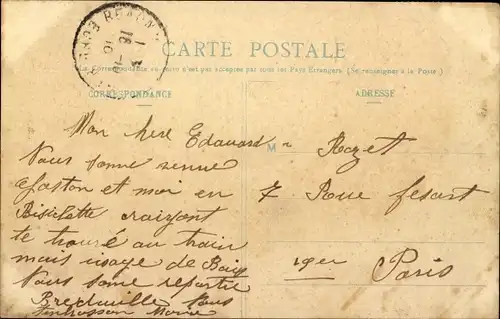 CARTE POSTALE
La Correspondance au recto n'est pas acceptée par tous les Pays Étrangers (Se renseigner à la Poste)
CORRESPONDANCE
ADRESSE
Mon here Edouard
Vous some venue
Gaston et moi en
croiyant
te trouvé au train
mais visage de Bois
Nous some repartir
Vous
M r Rozet
7 Rue fesart
19er Paris